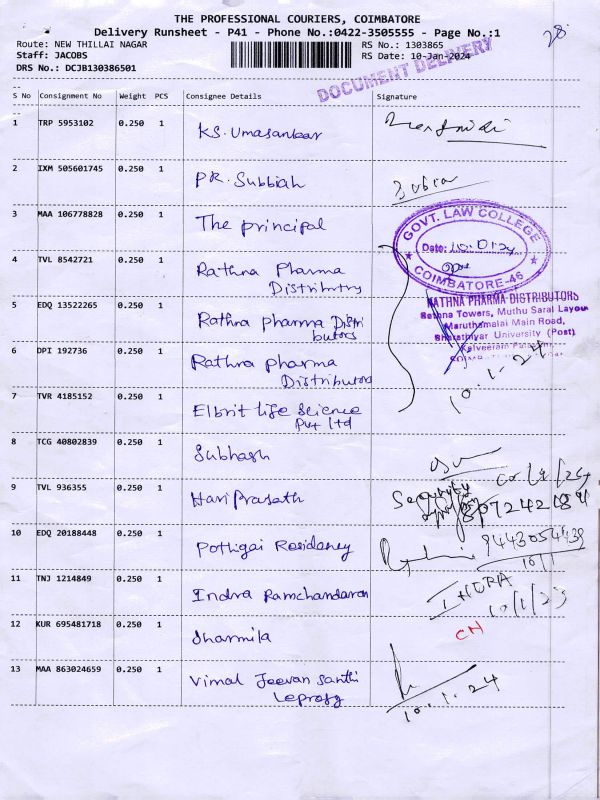 THE PROFESSIONAL COURIERS, COIMBATORE
Delivery Runsheet - P41 - Phone No.:0422-3505555 - Page No.:1
Route: NEW THILLAI NAGAR
RS No.: 1303865
Staff: JACOBS
RS Date: 10-Jan-2024
DRS No.: DCJB130386501
DOCUMENT DELIVERY
28
S No Consignment No Weight PCS Consignee Details Signature
1 TRP 5953102 0.250 1 K.S. Umasankar
2 IXM 505601745 0.250 1 P.R. Subbiah
3 MAA 106778828 0.250 1 The principal
GOVT. LAW COLLEGE
Date:
COIMBATORE-46
4 TVL 8542721 0.250 1 Rathna Pharma
Distribntry
RATHNA PHARMA DISTRIBUTORS
Rethna Towers, Muthu Saral Layout
Maruthamalai Main Road,
Bharathiyar University (Post)
5 EDQ 13522265 0.250 1 Rathra pharma Distri
butors
6 DPI 192736 0.250 1 Rathra pharma
Distributors
10.1.24
7 TVR 4185152 0.250 1 Elbrit life Science
Pvt ltd
8 TCG 40802839 0.250 1 Subhash
9 TVL 936355 0.250 1 Hari Prasath
Security
10 EDQ 20188448 0.250 1 Pothigai Residancy
9443054438
10/1
11 TNJ 1214849 0.250 1 Indra Ramchandaran
10/1/23
12 KUR 695481718 0.250 1 Sharmila CH
13 MAA 863024659 0.250 1 Vimal Jeevan Santhi
Leprosy
10.1.24